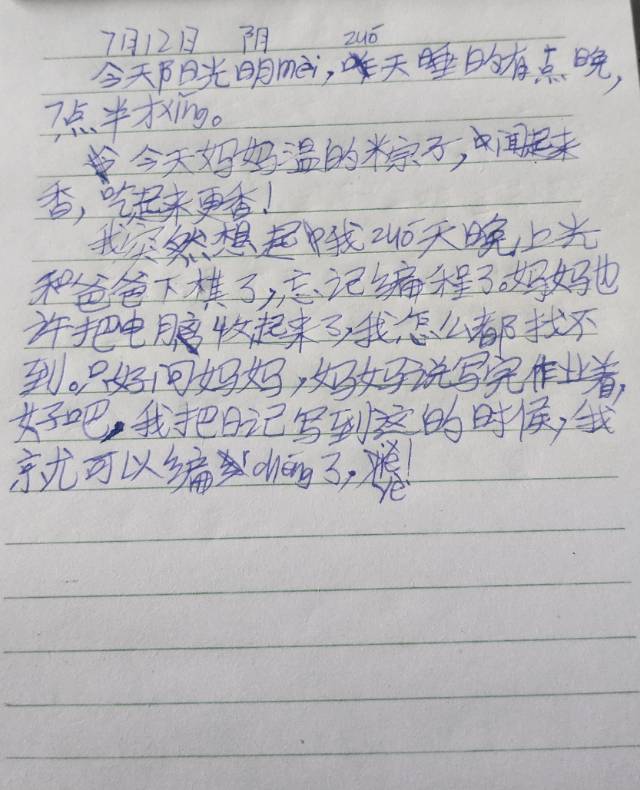 7月12日 阴
今天阳光明mèi,zuó天睡的有点晚,
7点半才xǐng。
今天妈妈温的米粽子,闻起来
香,吃起来更香!
我突然想起我zuó天晚上光
和爸爸下棋了,忘记编程了。妈妈也
许把电脑收起来了,我怎么都找不
到。只好问妈妈,妈妈说写完作业着,
好吧,我把日记写到这的时候,我
就可以编chéng了,yè!